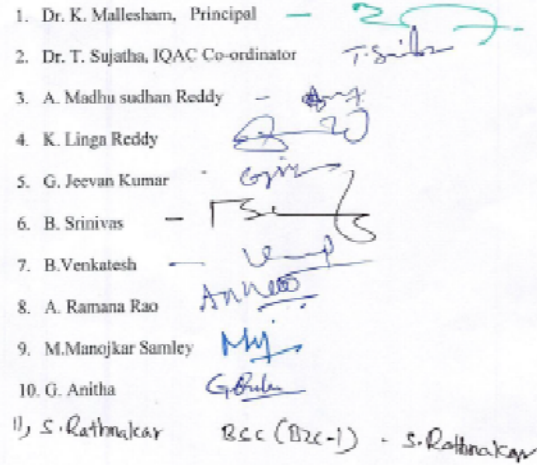 1. Dr. K. Mallesham, Principal —
2. Dr. T. Sujatha, IQAC Co-ordinator
3. A. Madhu sudhan Reddy -
4. K. Linga Reddy
5. G. Jeevan Kumar -
6. B. Srinivas —
7. B.Venkatesh —
8. A. Ramana Rao
9. M.Manojkar Samley
10. G. Anitha
11) S. Rathnakar BSC (BZC-1) - S. Rathnakar